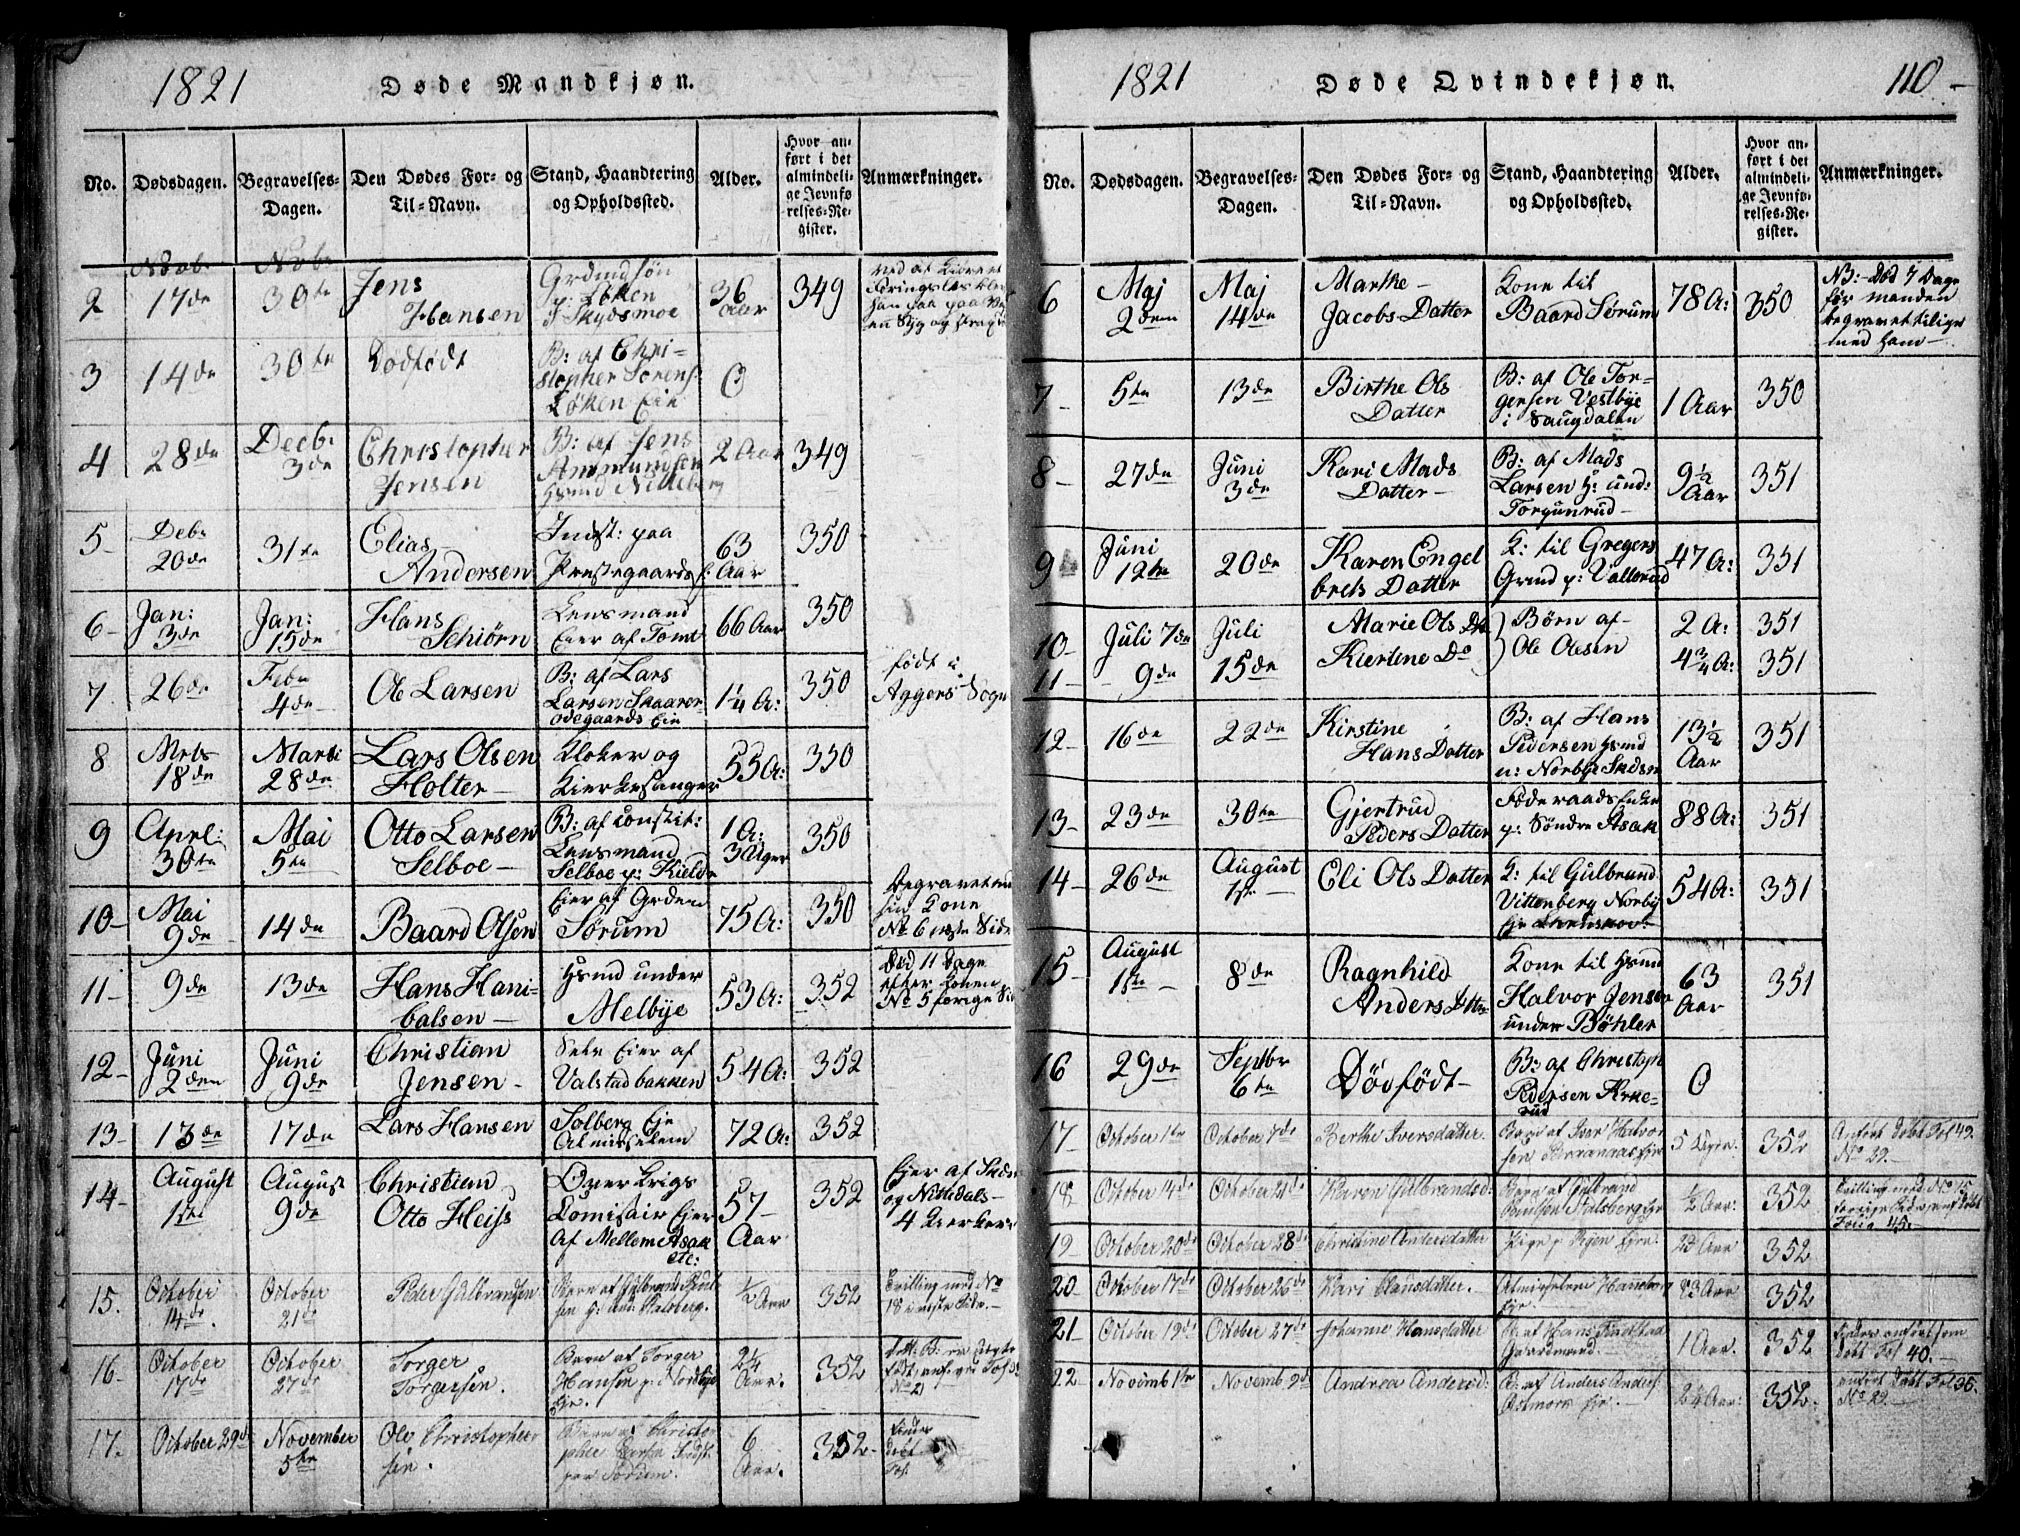 1821
Døde Mandkjøn.
No.
Dødsdagen.
Begravelses-
Dagen.
Den Dødes For- og
Til-Navn.
Stand, Haandtering
og Opholdssted.
Alder.
Hvor an-
ført i det
almindeli-
ge Jevnfø-
relses-Re-
gister.
Anmærkninger.
2
Novb:
17de
Novb:
30te
Jens
Hansen
Grdmdsøn
p: Løken
i Skydsmoe
36
Aar
349
3
14de
30te
Dødfødt
B: af Chri-
stopher Sørens:
Løken Eie
0
4
28de
Decb:
3de
Christopher
Jensen
B: af Jens
Ammundsen
Hsmd Nitteberg
2 Aar
349
5
Deb:
20de
31te
Elias
Andersen
Indst: paa
Prestegaards:
63
Aar
350
6
Jan:
3de
Jan:
15de
Hans
Schiørn
Lensmand
Eier af Tomt
66 Aar
350
7
26de
Febr
4de
Ole Larsen
B: af Lars
Larsen Skaarer-
ødegaards Eie
1¼ A:
350
født i
Aggers Sogn
8
Mrts
18de
Marti
28de
Lars Olsen
Holter
Kloker og
Kierkesanger
55 A:
350
9
Aprl:
30te
Mai
5te
Otto Larsen
Selboe
B: af constit:
Lensmand
Selboe p: Kielde
1 A:
3 Uger
350
10
Mai
9de
14de
Baard Olsen
Eier af Grden
Sørum
75 A:
350
Begravet med
sin Kone
No 6 næste Side
11
9de
13de
Hans Hani-
balsen
Hsmd under
Melbye
53 A:
352
Død 11 Dage
efter Konen
No 5 forige Side
12
Juni
2den
Juni
9de
Christian
Jensen
Selv Eier af
Valstadbakken
54 A:
352
13
13de
17de
Lars Hansen
Solberg Eje
Almisselem
72 A:
352
14
August
1ste
August
9de
Christian
Otto Heiss
Over Krigs
Comisair Eier
af Mellem Asak
etc:
57
Aar
352
Eier af Skedsmo
og Nittedals
4 Kierker
15.
October
14de.
October
21de
Peder Gulbrandsen
Barn af Gulbrand Poul-
sen
Stalsberg.
½ Aar
352
Tvilling med No
18 i næste Side.
16.
October
17de
October
27de
Torger
Torgersen.
Barn af Torger
Hansen p: Nordbye
Eje.
2¼
Aar.
352
17.
October 29de
November
5te
Ole Christopher-
sen.
Barn af Christo-
pher Larsen Indst:
paa Sørum.
6
Aar.
352.
Findes
Døbt
Fol.
1821
Døde Qvindekjøn.
110
No.
Dødsdagen.
Begravelses-
Dagen.
Den Dødes For- og
Til-Navn.
Stand, Haandtering
og Opholdssted.
Alder.
Hvor an-
ført i det
almindeli-
ge Jevnfø-
relses-Re-
gister.
Anmærkninger.
6
Maj
2den
Maj
14de
Marthe
Jacobs Datter
Kone til
Baard Sørum
78 A:
350
NB:- Død 7 Dage
før manden
begravet tilige
med ham
7
5te
13de
Birthe Ols
Datter
B: af Ole Tor-
gersen Vestbye
i Saugdalen
1 Aar
350
8
27de
Juni
3de
Kari Mads
Datter
B: af Mads
Larsen H: und:
Torgunrud
9½
Aar
351
9
Juni
12te
20de
Karen Engel
brets Datter
K: til Gregers
Grmd p: Vallerud
47 A:
351
10
Juli 7de
Juli
15de
Marie Ols Dtr
Børn af
Ole Olesen
2 A:
351
11
9de
Kierstene Do
4¾ A:
351
12
16de
22de
Kirstine
Hans Datter
B: af Hans
Pedersen Hsmd
u: Norbye Skedsm
13½
Aar
351
13
23de
30te
Gjertrud
Peders Datter
Føderaads Enke
p: Søndre Asak
88 A:
351
14
26de
August
1ste
Eli Ols Datter
K: til Gulbrand
Vittenberg Norby
54 A:
351
15
August
1ste
8de
Ragnhild
Anders Dtter
Kone til Hsmd
Halvor Jensen
under Bøhler
63
Aar
351
16
29de
Septbr
6te
Dødfødt
B: af Christoph
Pedersen Arne-
rud
0
17
October 1te
October 7de
Berthe Iversdatter.
Barn af Iver Halvor
sen
5 Uger.
352
Anført Døbt Fol 49.
No 29.
18
October 14de
October 21de
Karen Gulbrandsd:
Barn af Gulbrand
Poulsen Stalsberg Eje
½ Aar:
352
Tvilling med No 15
forrige Side, anf. Døbt
Folio 45.
19
October 20de
October 28de
Christine Andersdatter
352
20
October 17de
October 26de
Kari Clausdatter.
Almisselem
Eje.
83 Aar
352
21
October 19de
October 27de
Johanne Hansdatter
B: af Hans
Gaardmand.
1 Aar.
352
Findes anført som
Døbt Fol 40.
22
Novemb 1te
Novemb 9de
Andrea Andersd:
B: af Anders Anders:
Eje.
2¼ Aar:
352.
anført Døbt Fol 35.
No 22.